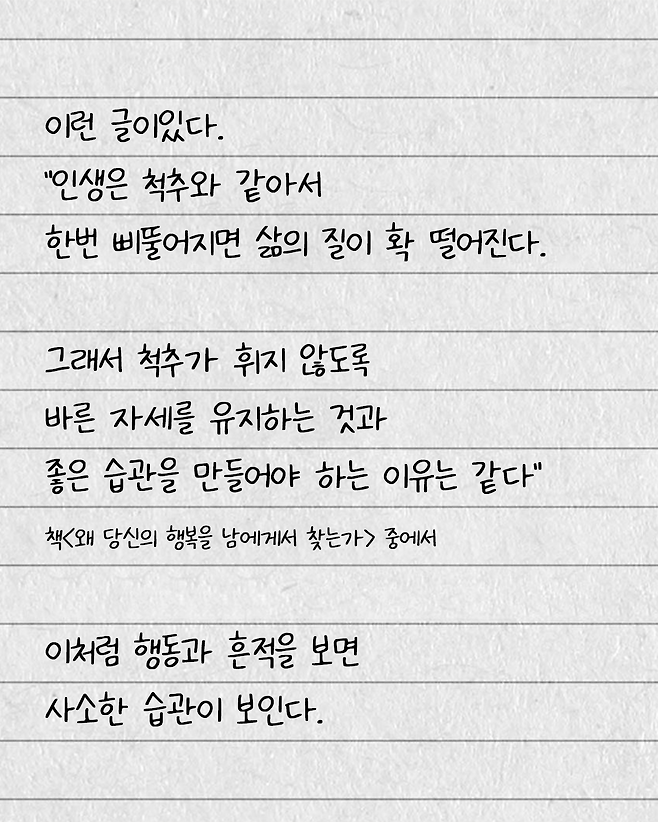 이런 글이있다.
"인생은 척추와 같아서
한번 삐뚤어지면 삶의 질이 확 떨어진다.
그래서 척추가 휘지 않도록
바른 자세를 유지하는 것과
좋은 습관을 만들어야 하는 이유는 같다"
책<왜 당신의 행복을 남에게서 찾는가> 중에서
이처럼 행동과 흔적을 보면
사소한 습관이 보인다.